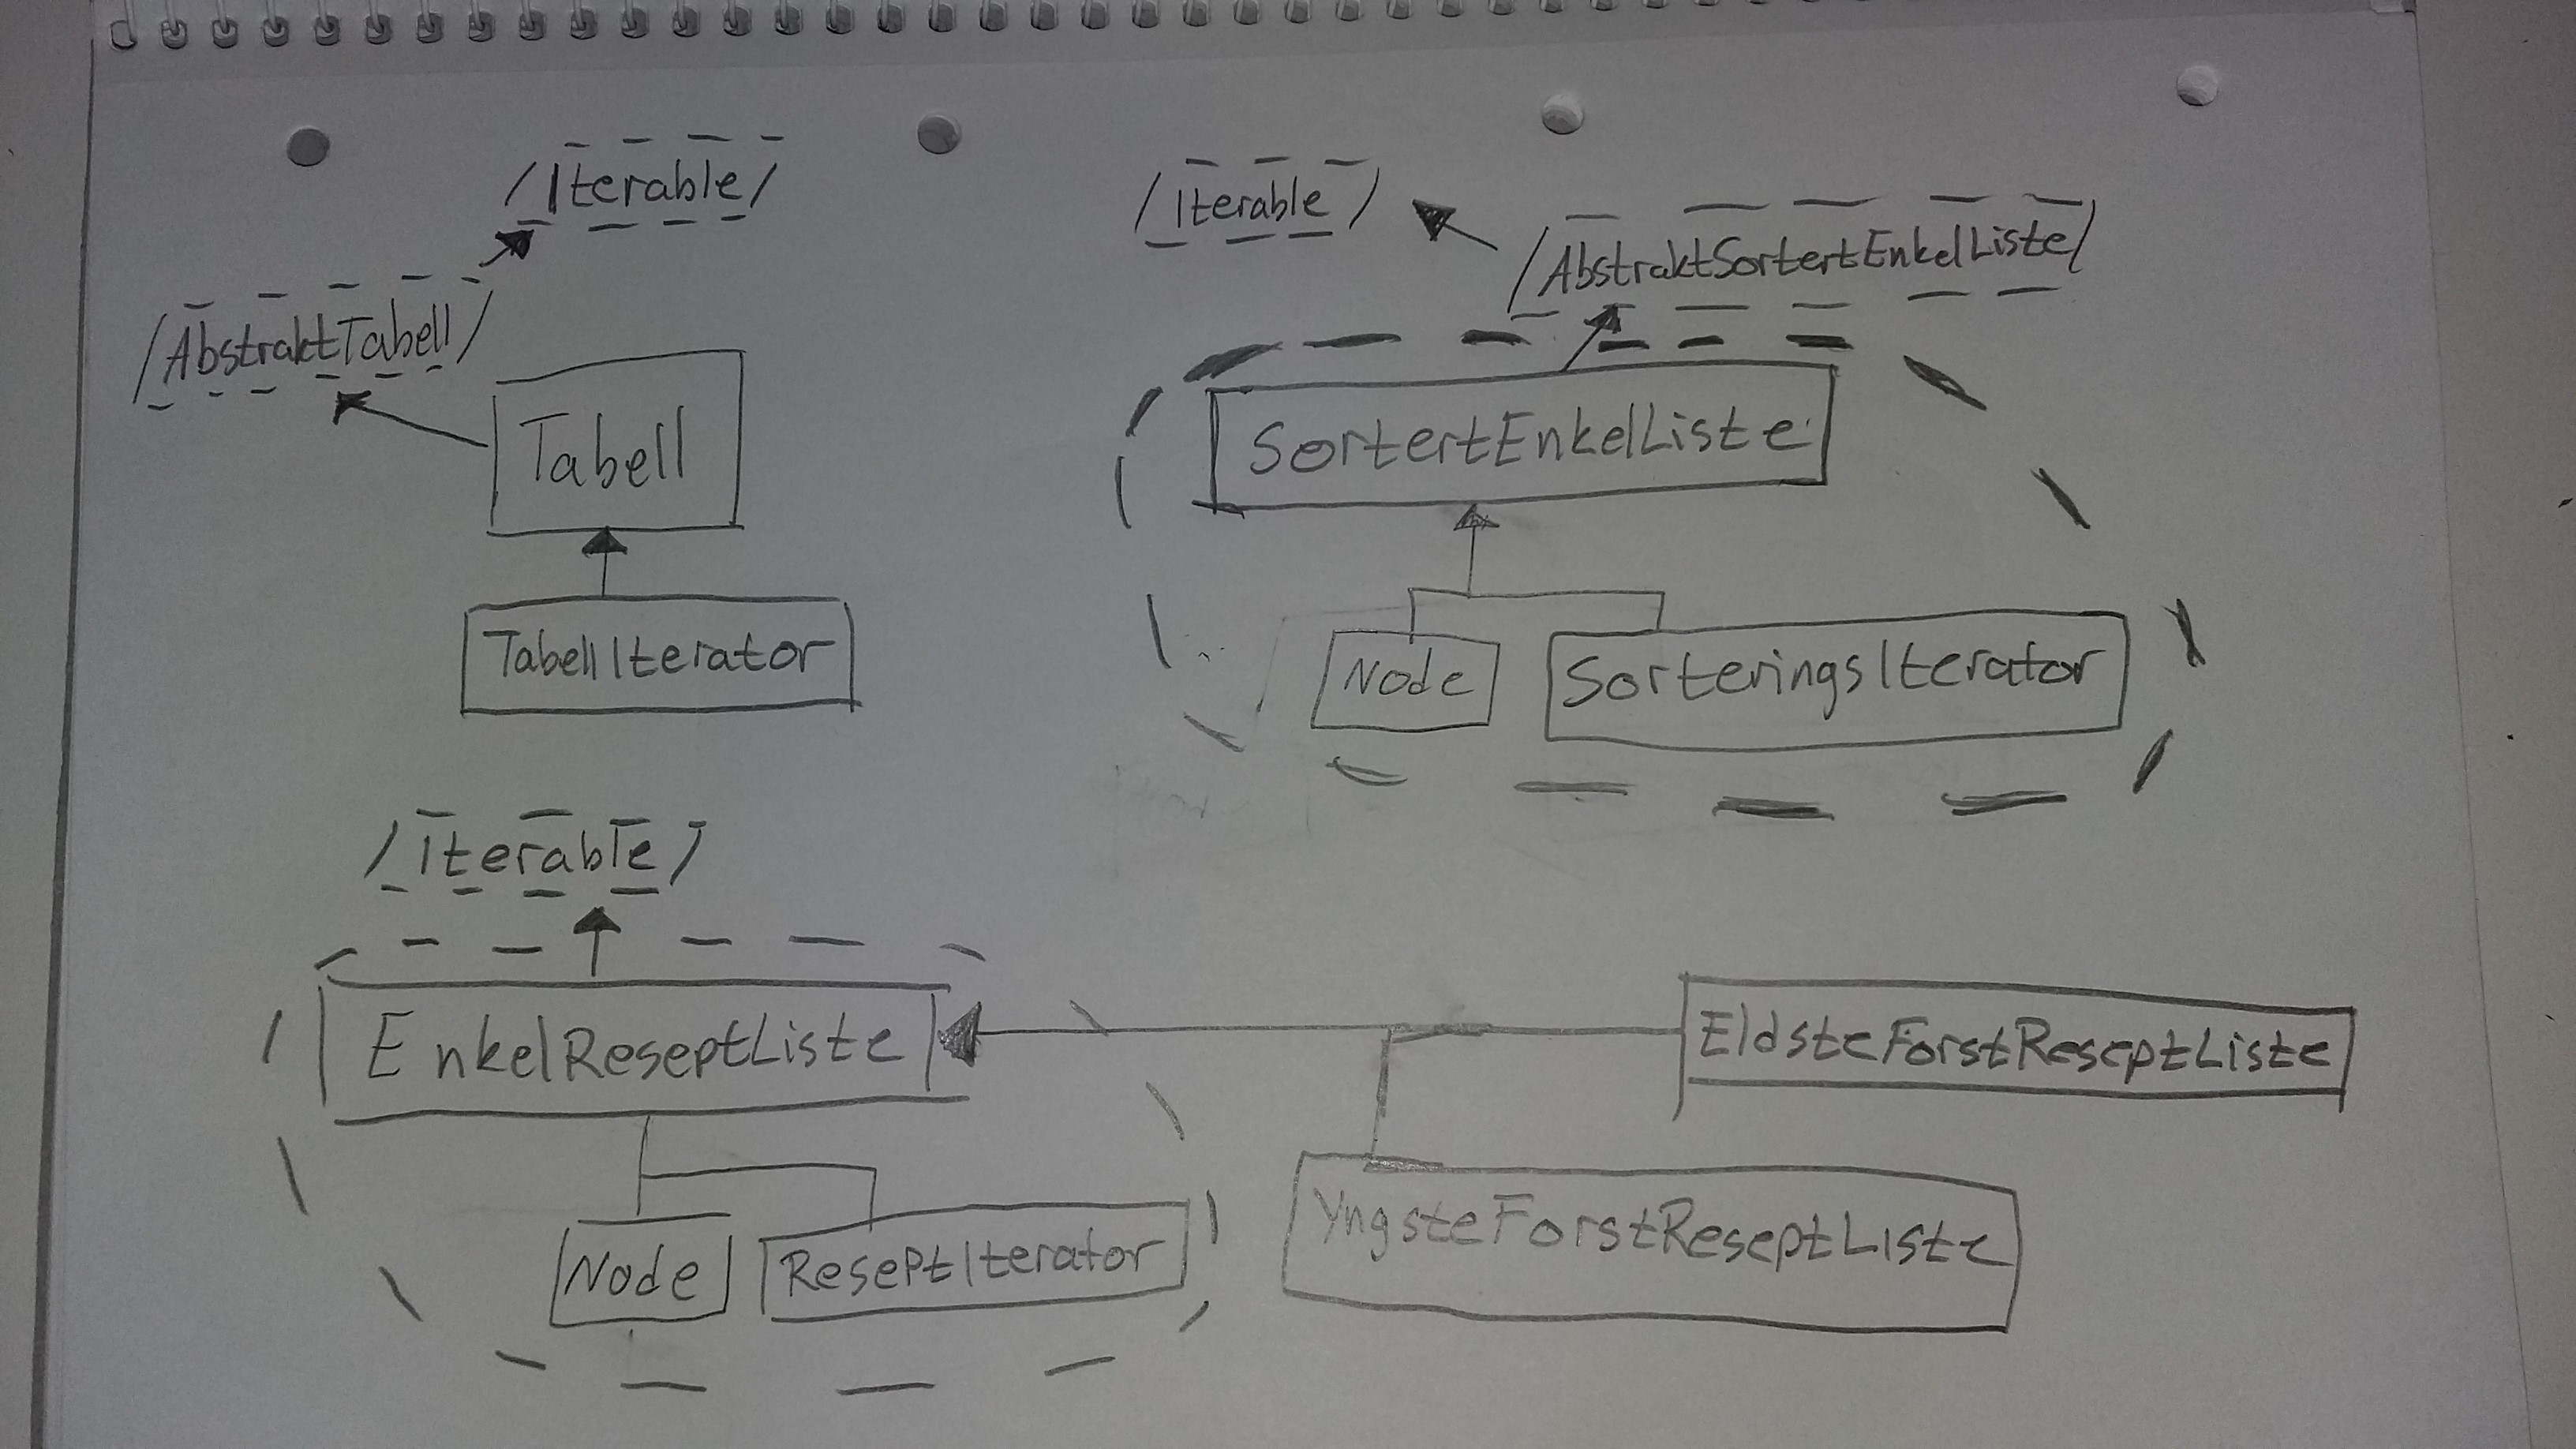 /Iterable/
/AbstraktTabell/
Tabell
TabellIterator
/Iterable/
/AbstraktSortertEnkelListe/
SortertEnkelListe
Node
SorteringsIterator
/Iterable/
EnkelReseptListe
Node
ReseptIterator
EldsteForstReseptListe
YngsteForstReseptListe